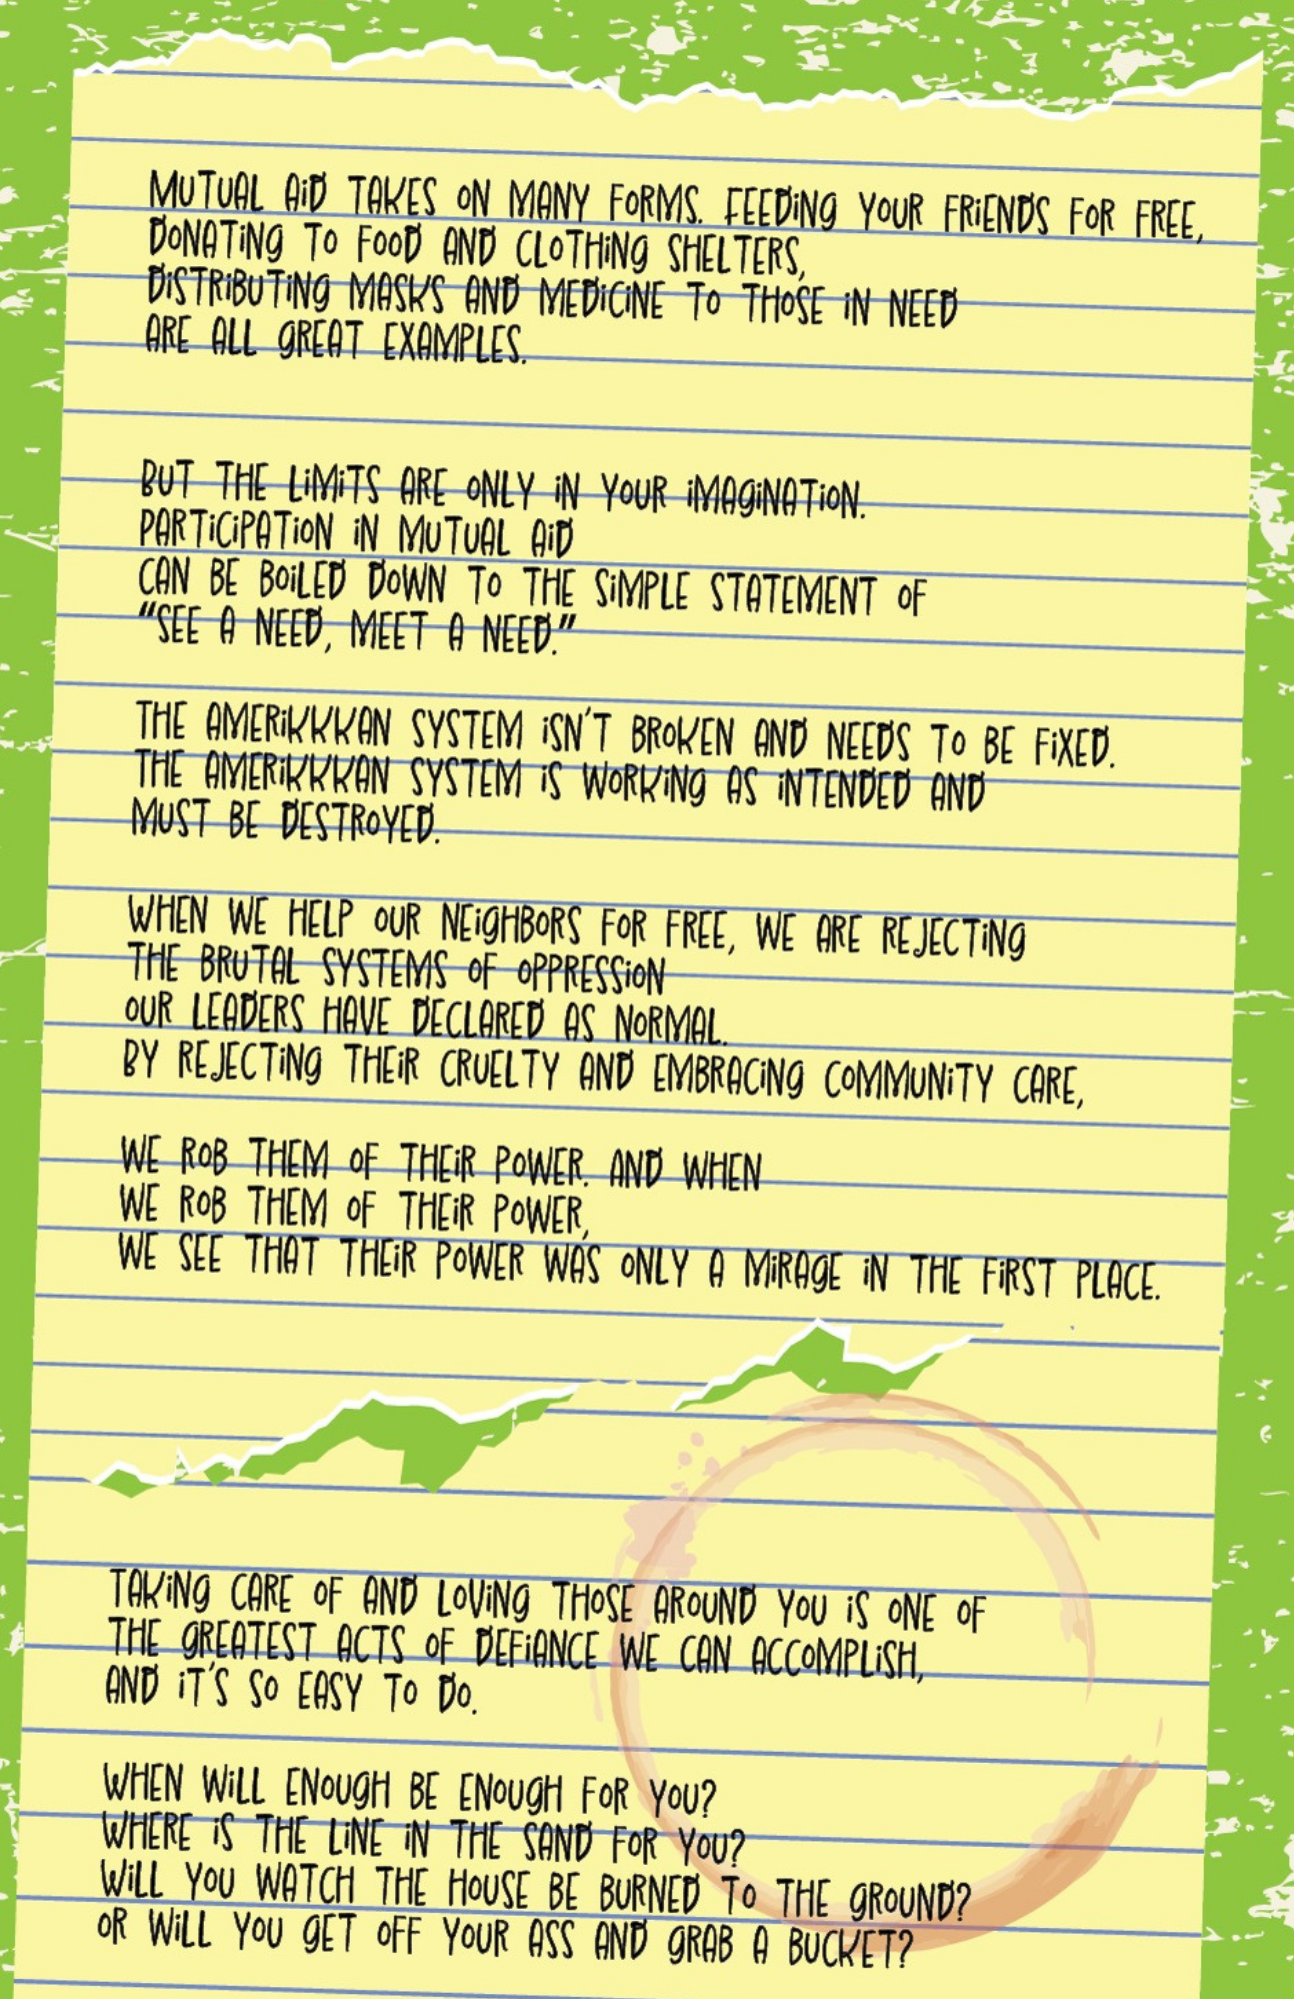 MUTUAL AID TAKES ON MANY FORMS. FEEDING YOUR FRIENDS FOR FREE,
DONATING TO FOOD AND CLOTHING SHELTERS,
DISTRIBUTING MASKS AND MEDICINE TO THOSE IN NEED
ARE ALL GREAT EXAMPLES.
BUT THE LIMITS ARE ONLY IN YOUR IMAGINATION.
PARTICIPATION IN MUTUAL AID
CAN BE BOILED DOWN TO THE SIMPLE STATEMENT OF
"SEE A NEED, MEET A NEED."
THE AMERIKKKAN SYSTEM ISN'T BROKEN AND NEEDS TO BE FIXED.
THE AMERIKKKAN SYSTEM IS WORKING AS INTENDED AND
MUST BE DESTROYED.
WHEN WE HELP OUR NEIGHBORS FOR FREE, WE ARE REJECTING
THE BRUTAL SYSTEMS OF OPPRESSION
OUR LEADERS HAVE DECLARED AS NORMAL.
BY REJECTING THEIR CRUELTY AND EMBRACING COMMUNITY CARE,
WE ROB THEM OF THEIR POWER. AND WHEN
WE ROB THEM OF THEIR POWER,
WE SEE THAT THEIR POWER WAS ONLY A MIRAGE IN THE FIRST PLACE.
TAKING CARE OF AND LOVING THOSE AROUND YOU IS ONE OF
THE GREATEST ACTS OF DEFIANCE WE CAN ACCOMPLISH,
AND IT'S SO EASY TO DO.
WHEN WILL ENOUGH BE ENOUGH FOR YOU?
WHERE IS THE LINE IN THE SAND FOR YOU?
WILL YOU WATCH THE HOUSE BE BURNED TO THE GROUND?
OR WILL YOU GET OFF YOUR ASS AND GRAB A BUCKET?